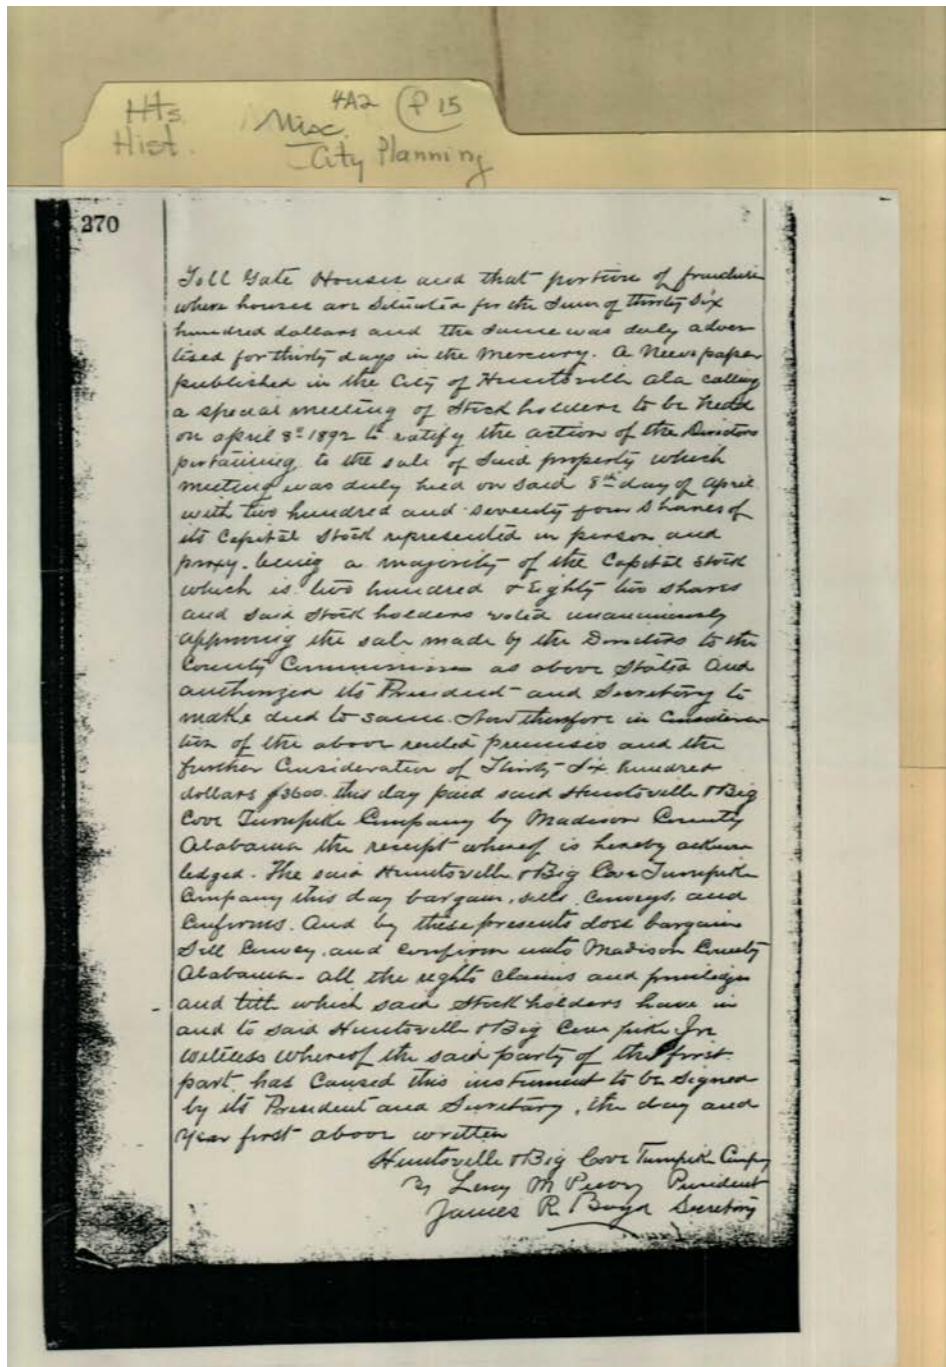 Hts. Hist.
4A2 P 15
Misc.
City Planning
270
Toll Gate Houses and that portion of franchise
where houses are situated for the sum of thirty six
hundred dollars and the same was duly adver
tised for thirty days in the Mercury. A News paper
published in the City of Huntsville Ala calling
a special meeting of Stock holders to be held
on april 8th 1892 to ratify the action of the Directors
pertaining to the sale of said property which
meeting was duly held on said 8th day of april
with two hundred and seventy four shares of
its Capital Stock represented in person and
proxy. being a majority of the Capital stock
which is two hundred & Eighty two shares
and said Stock holders voted unanimously
approving the sale made by the Directors to the
County Commissioners as above stated and
authorized its President and Secretary to
make deed to same. Now therefore in Considera
tion of the above recited premises and the
further Consideration of Thirty Six hundred
dollars $3600. this day paid said Huntsville & Big
Cove Turnpike Company by Madison County
Alabama the receipt whereof is hereby acknow
ledged. The said Huntsville & Big Cove Turnpike
Company this day bargain, sells, conveys, and
Confirms. And by these presents does bargain
Sell Convey, and confirm unto Madison County
Alabama all the rights claims and priviledges
and title which said Stock holders have in
and to said Huntsville & Big Cove pike In
witness whereof the said party of the first
part, has caused this instrument to be signed
by its President and Secretary, the day and
year first above written
Huntsville & Big Cove Turnpike Compy
By M President
James R. Boyd Secretary